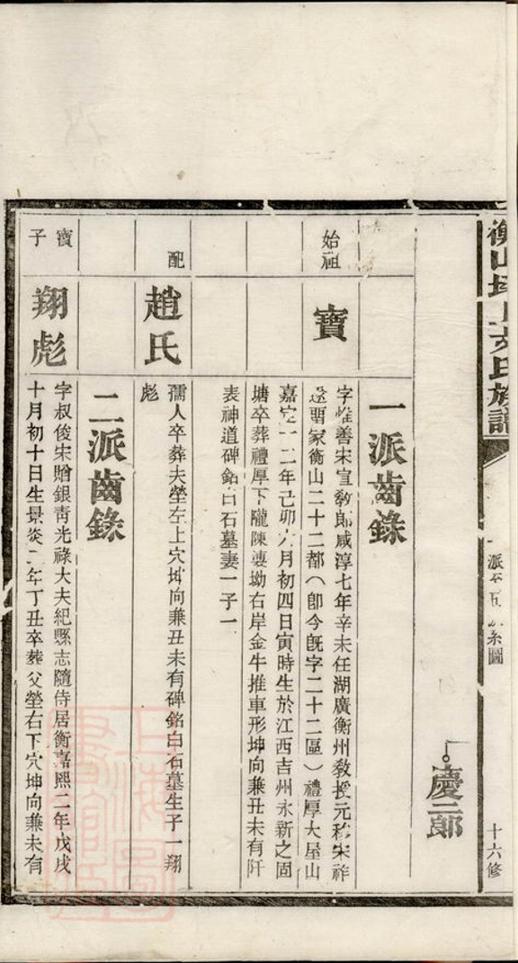 衡山 氏族譜
派 五 系圖
十六修
慶三郎
一派齒錄
始祖
寶
字惟善宋宣敎郎咸淳七年辛未任湖廣衡州敎授元移宋祚
遂 家衡山二十二都（卽今旣字二十二區）禮厚大屋山
嘉定十二年己卯六月初四日寅時生於江西吉州永新之固
塘卒葬禮厚下隴陳 坳右岸金牛推車形坤向兼丑未有阡
表神道碑銘白石墓妻一子一
配
趙氏
孺人卒葬夫塋左上穴坤向兼丑未有碑銘白石墓生子一翔
彪
二派齒錄
寶子
翔彪
字叔俊宋贈銀靑光祿大夫紀縣志隨侍居衡嘉熙二年戊戌
十月初十日生景炎二年丁丑卒葬父塋右下穴坤向兼未有
上海圖書館藏